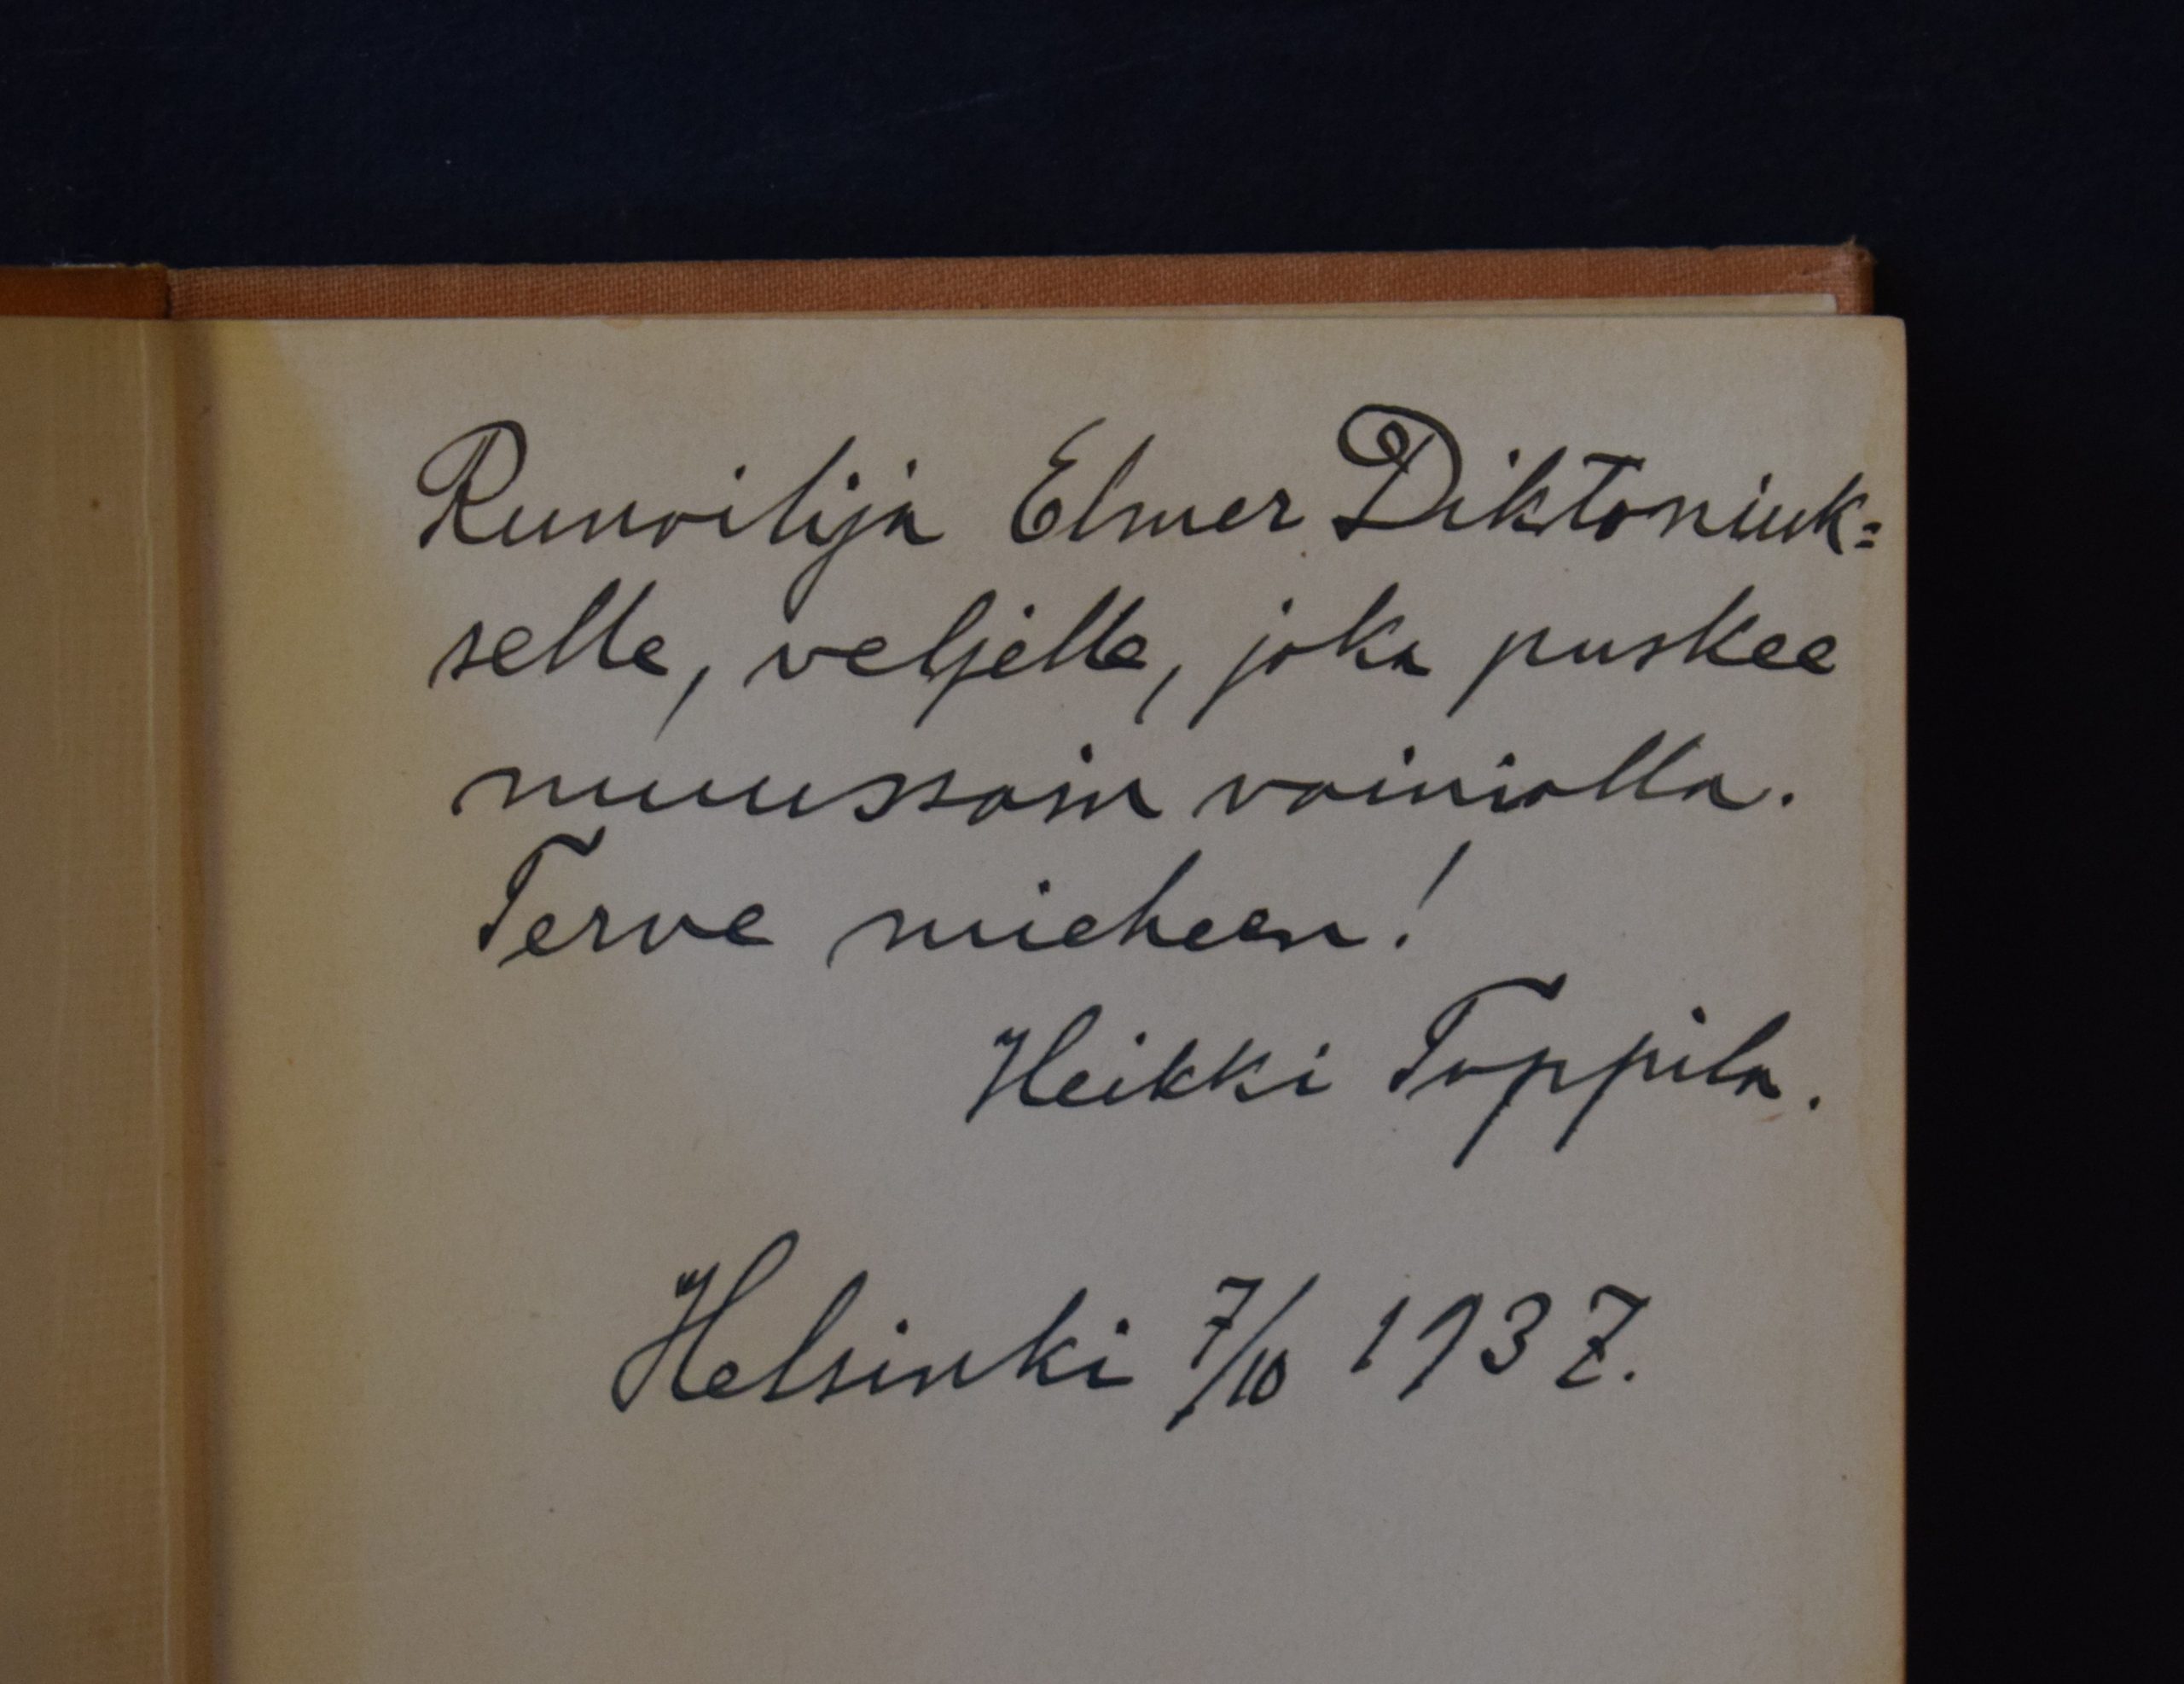 Runoilija Elmer Diktoniuk=
selle, veljelle, joka puskee
muussain vainiolla.
Terve mieheen!
Heikki Toppila.
Helsinki 7/10 1937.